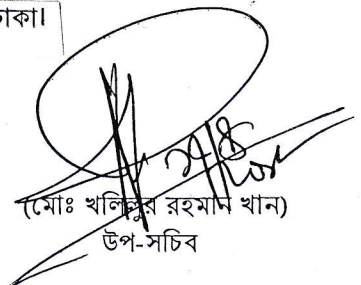 ঢাকা।
(মোঃ খলিলুর রহমান খান)
উপ-সচিব